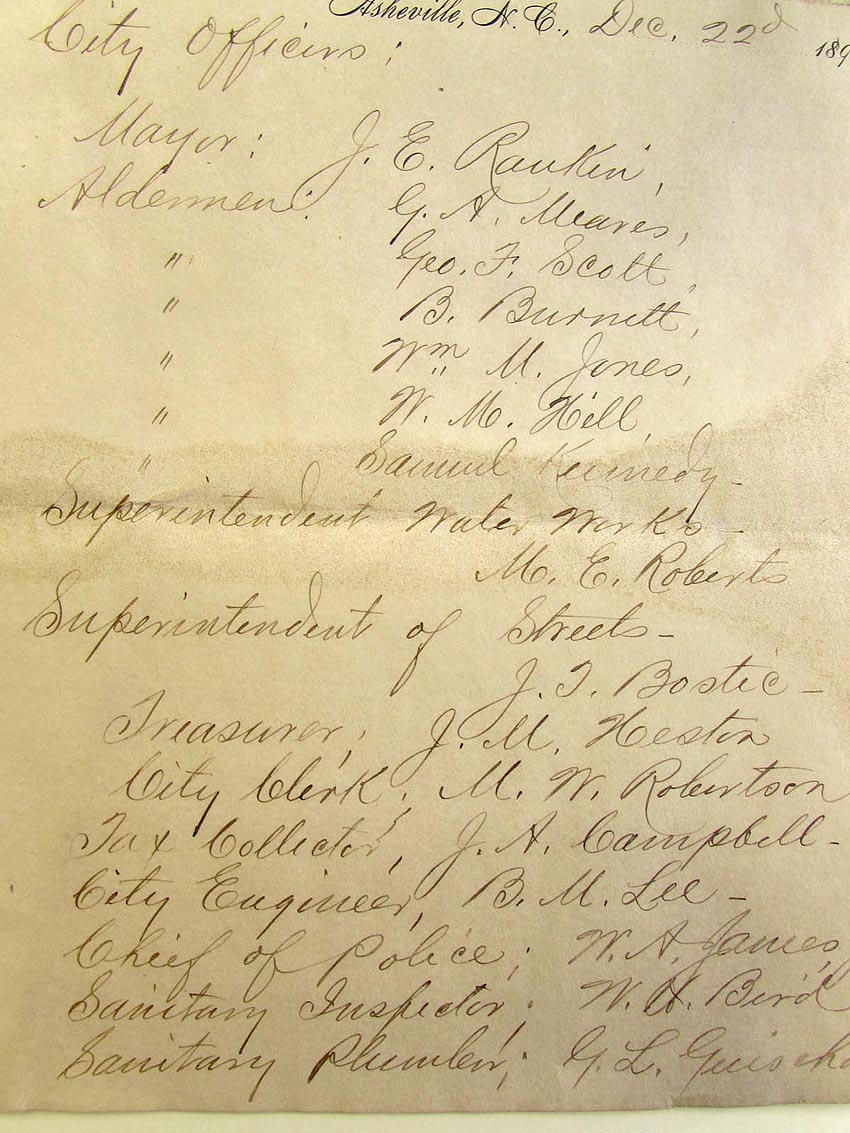 Asheville, N. C., Dec. 22d 189
City Officers;
Mayor: J. E. Rankin,
Aldermen: G. A. Meares,
" Geo. F. Scott,
" B. Burnett,
" Wm M. Jones,
" W. M. Hill
" Samuel Kennedy -
Superintendent Water Works -
M. E. Roberts
Superintendent of Streets -
J. T. Bostic -
Treasurer; J. M. Heston
City Clerk; M. W. Robertson
Tax Collector, J. A. Campbell -
City Engineer, B. M. Lee -
Chief of Police; W. A. James,
Sanitary Inspector; W. H. Bird
Sanitary Plumber; G. L.